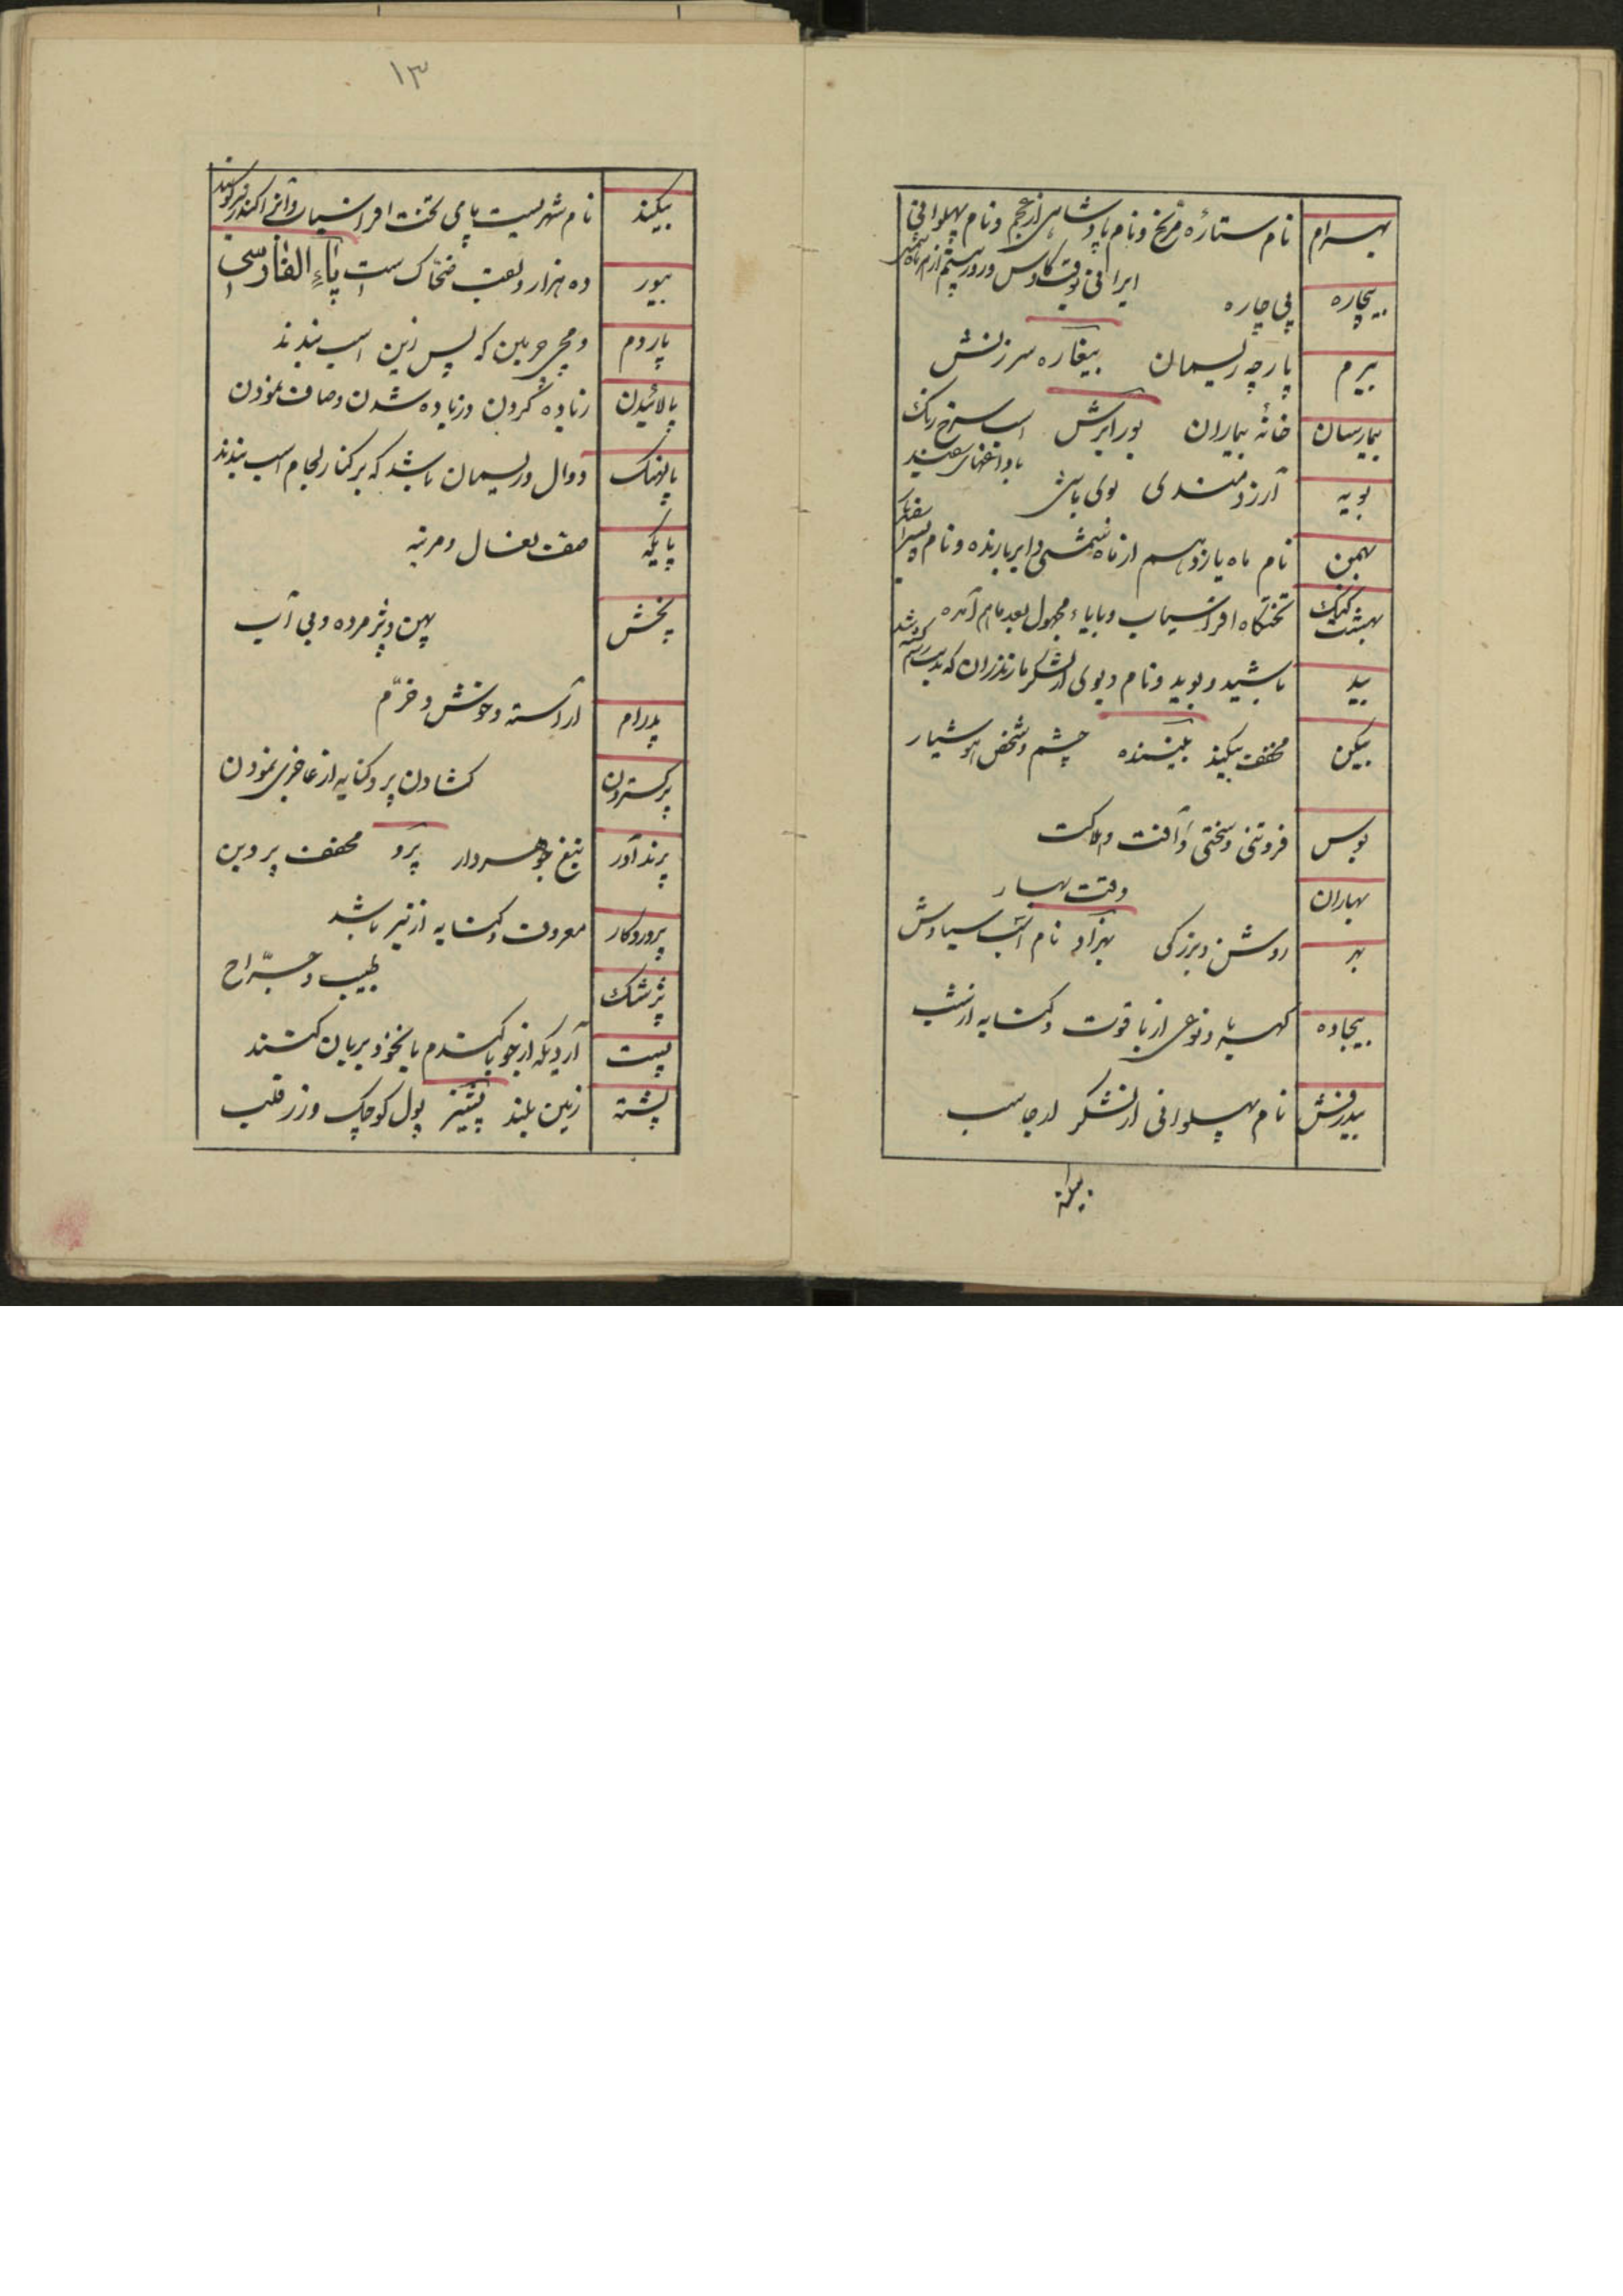 بهرام نام ستارهٔ مریخ و نام پادشاهی از عجم و نام پهلوانی
ایرانی وقت کاوس و روز بیستم از هر ماه شمسی
بیچاره بی چاره
بیرم پارچه ریسمان بیغاره سرزنش
بیمارسان خانهٔ بیماران بور ابرش اسب سرخ رنگ
با داغهای سفید
بویه آرزومندی بوی باش
بهمن نام ماه یازدهم از ماه شمسی و ابر بارنده و نام پسر اسفندیار
بهشت کنک تختگاه افراسیاب و بایاء مجهول بعد ماهم آمده
بید باشید و بوید و نام دیوی از لشکر مازندران که بدست رستم کشته شد
بیکن مخفف بیکند بیننده چشم و شخص هوشیار
بوس فروتنی و سختی و آفت و هلاکت
بهاران وقت بهار
بهر روشن و بزرگی بهزاد نام اسب سیاوش
بیجاده کهربا و نوعی از یاقوت و کنایه از لب
بیدرفش نام پهلوانی از لشکر ارجاسب
۱۳
بیکند نام شهریست پای تخت افراسیاب و آنرا کندز نیز گویند
بیور ده هزار و لقب ضحاک است باء الفارسی
پاردم و مچی چرمین که پس زین اسب بندند
پالائیدن زیاده کردن و زیاده شدن و صاف نمودن
پالهنک دوال و ریسمان باشد که بر کنار لجام اسب بندند
پایکه صف نعال و مرتبه
پخش پهن و پژمرده و بی آب
پدرام آراسته و خوش و خرّم
پر کستردن کشادن پر و کنایه از عاجزی نمودن
پرند آور تیغ جوهردار پرو مخفف پروین
پروردکار معروف و کنایه از نیز باشد
پژشک طبیب و جرّاح
پست آردیکه از جو یا کندم یا نخود بریان کنند
پشته زمین بلند پشیز پول کوچک و زر قلب